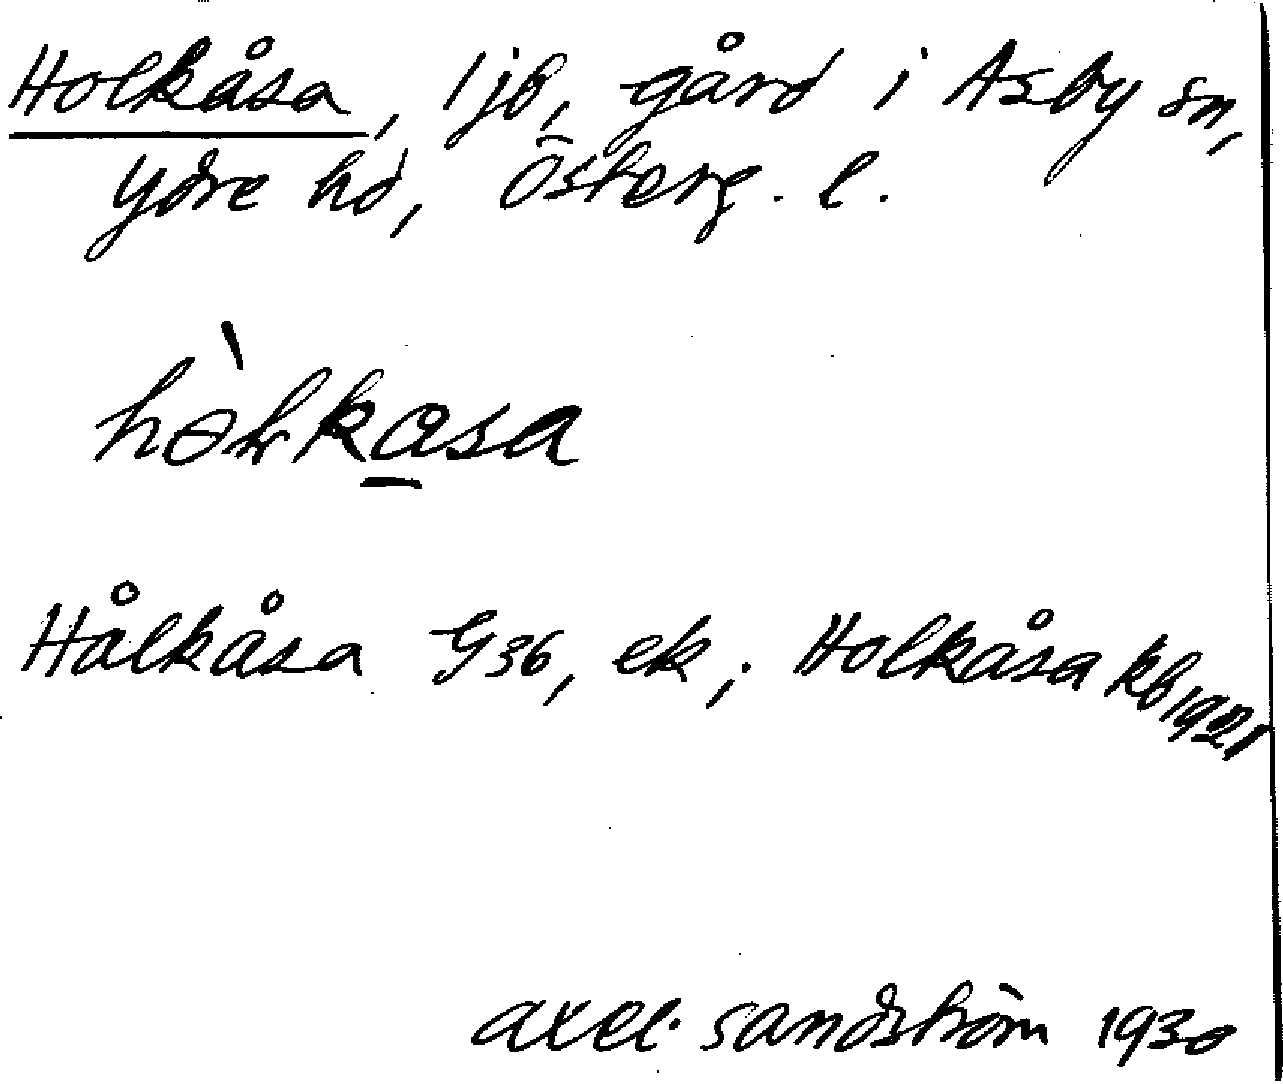 Holkåsa, 1 jb, gård i Asby sn,
Ydre hd, Österg. l.
hòlkåsa
Hålkåsa G36, ek,; Holkåsa kb 1921
axel. sandström 1930